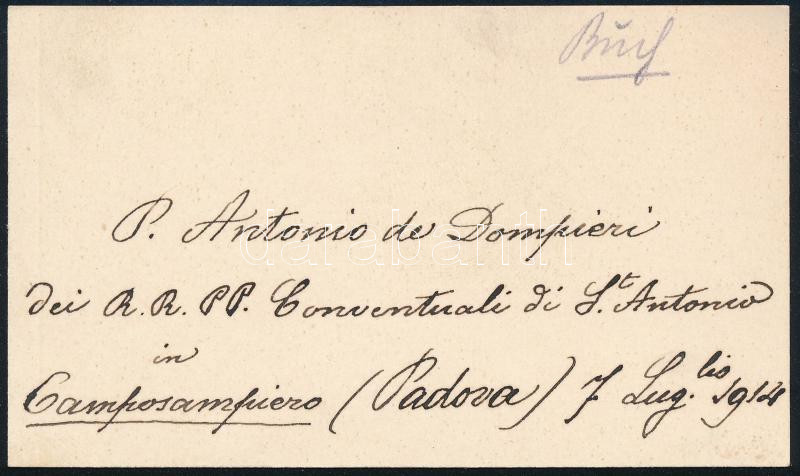 P. Antonio de Dompieri
darabanth
dei R. R. PP. Conventuali di S.t Antonio
in
Camposampiero (Padova) 7 Lug.lio 1914